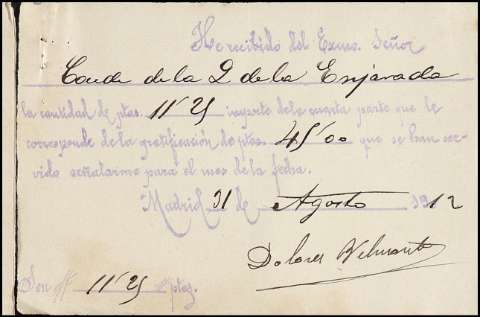 He recibido del Excmo. Señor
Conde de la Q de la Enjarada
la cantidad de ptas. 11'25 importe de la cuarta parte que le
corresponde de la gratificación de ptas. 45'00 que se han ser-
vido señalarme para el mes de la fecha.
Madrid 31 de Agosto 1912
Dolores
Son # 11'25 ptas.